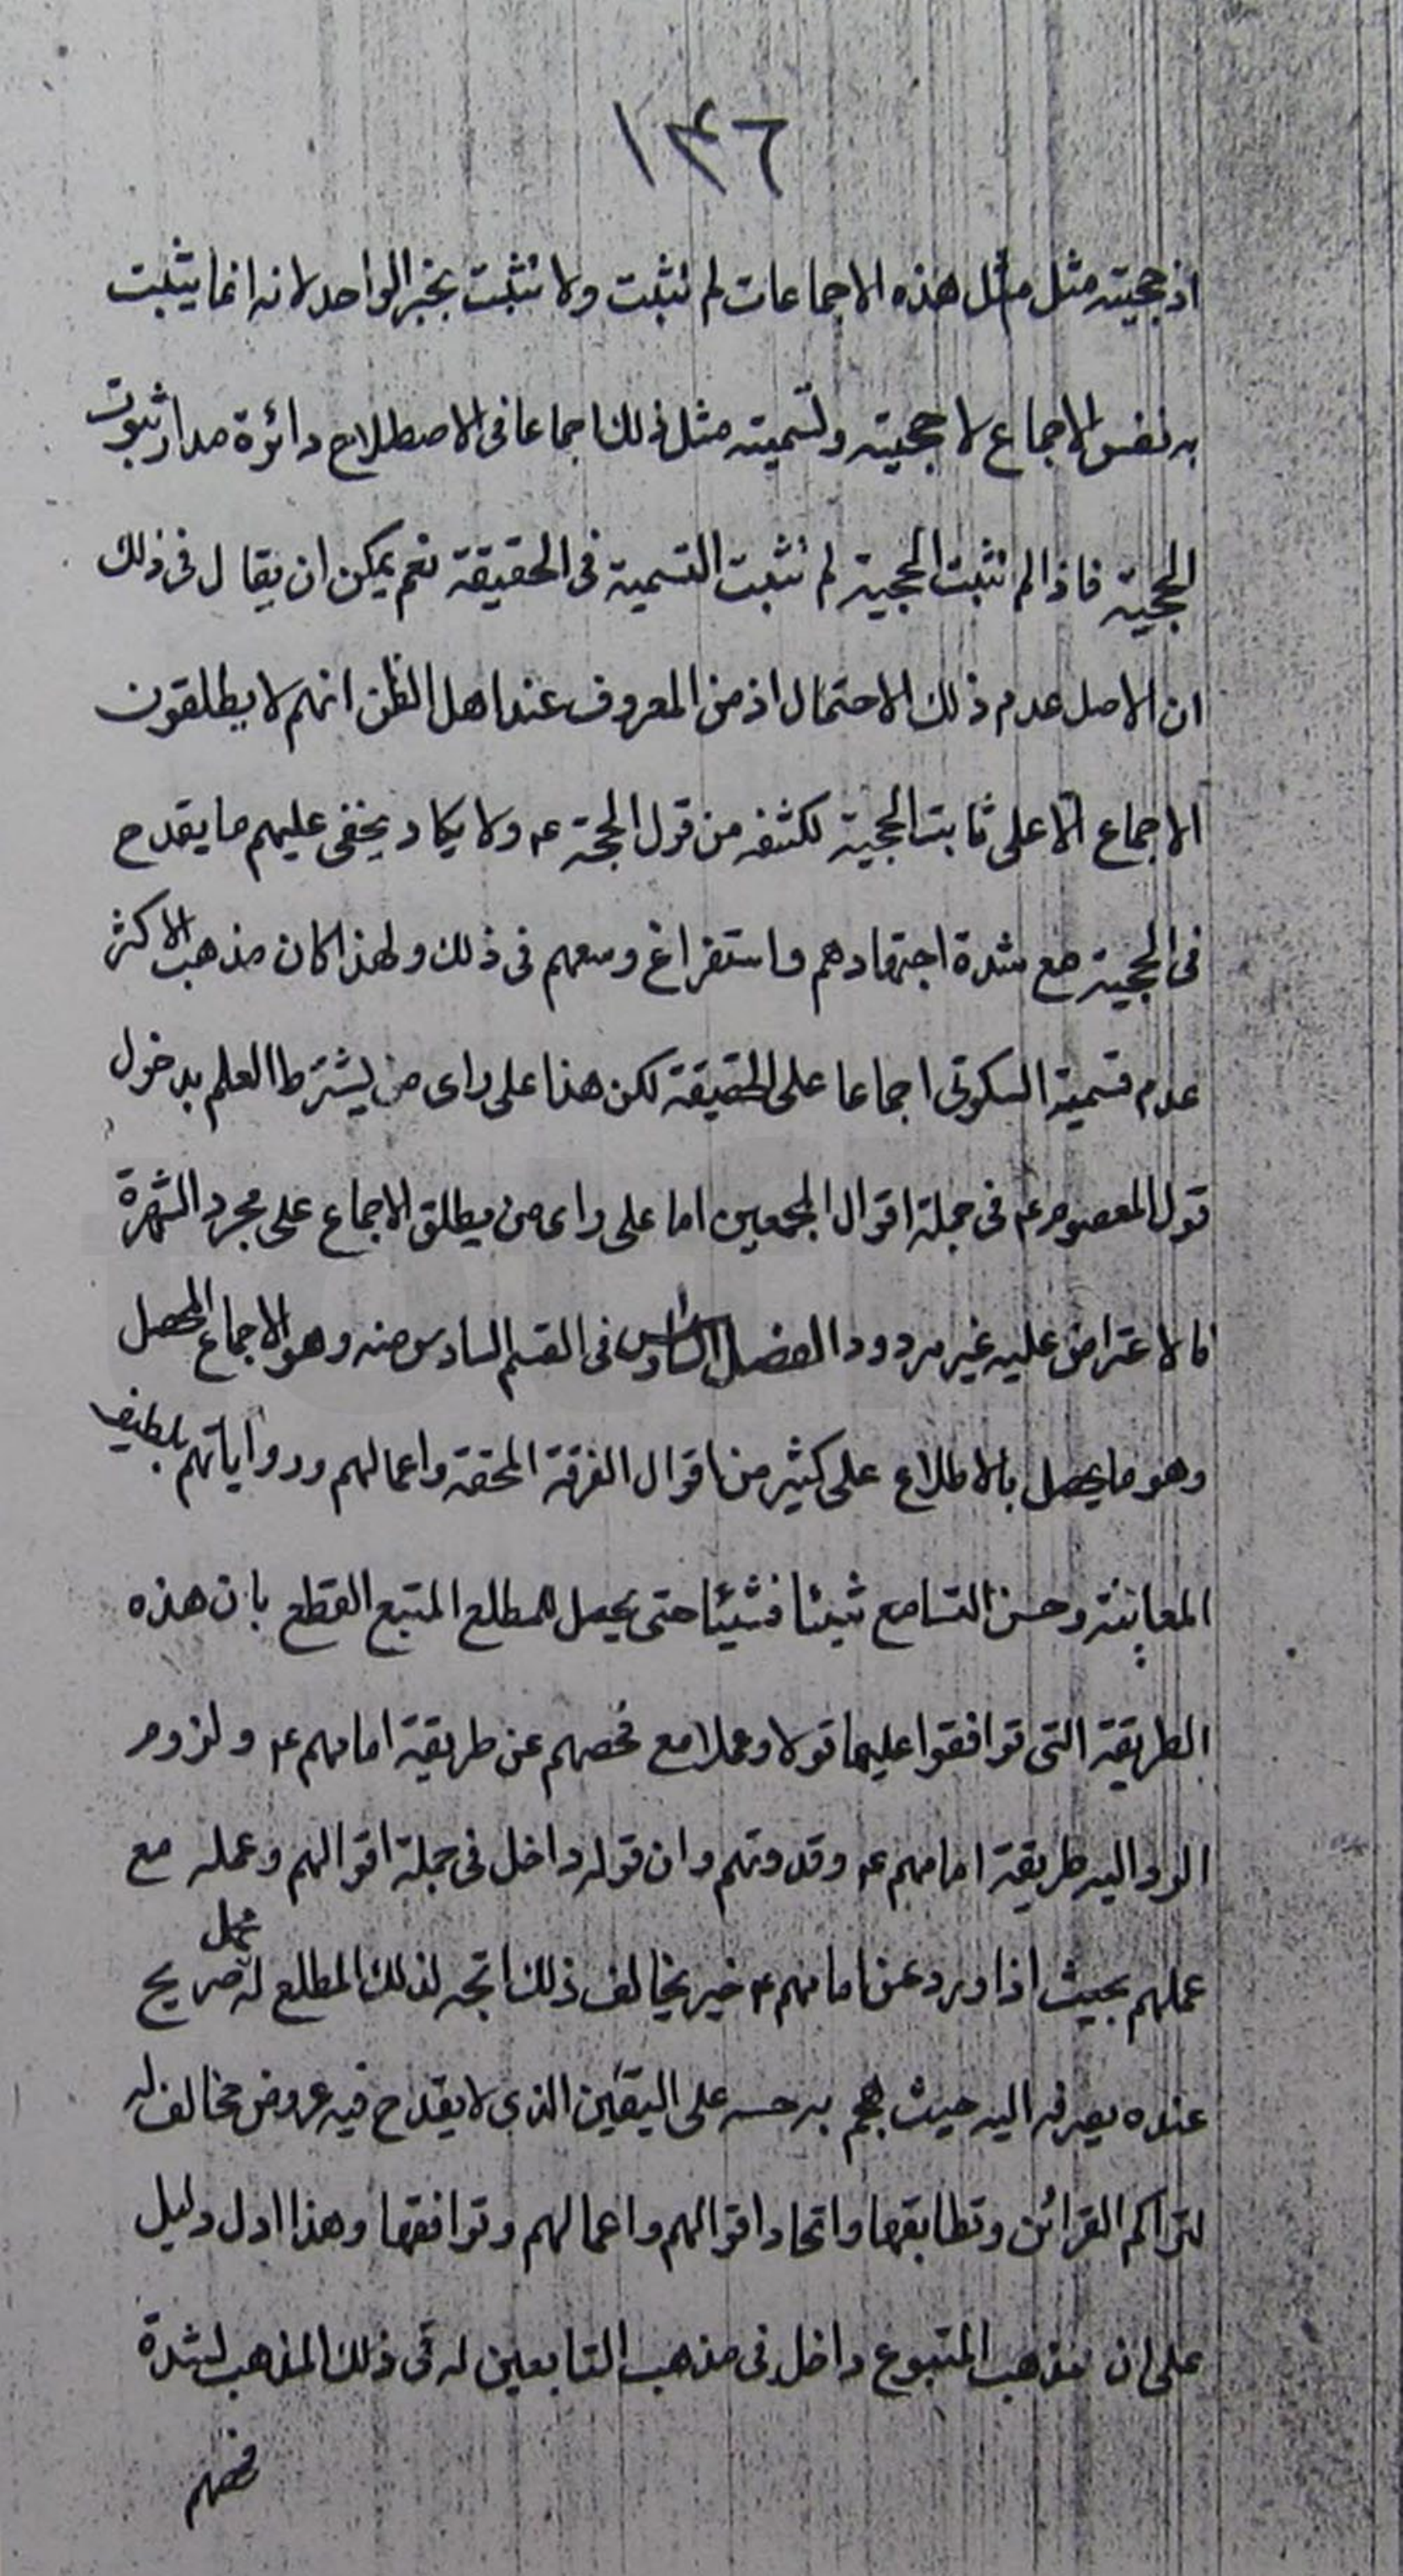 ١٣٦
اذ حجيته مثل مثل هذه الاجماعات لم تثبت ولا تثبت بخبر الواحد لانه انما يثبت
به نفس الاجماع لا حجيته وتسميته مثل ذلك اجماعا فى الاصطلاح دائرة مدار ثبوت
الحجية فاذا لم تثبت الحجية لم تثبت التسمية فى الحقيقة نعم يمكن ان يقال فى ذلك
ان الاصل عدم ذلك الاحتمال اذ من المعروف عند اهل الظن انهم لا يطلقون
الاجماع الا على ثابت الحجية لكشفه من قول الحجة ع ولا يكاد يخفى عليهم ما يقدح
فى الحجية مع شدة اجتهادهم واستفراغ وسعهم فى ذلك ولهذا كان مذهب الاكثر
عدم تسمية السكوتى اجماعا على الحقيقة لكن هذا على راى من يشترط العلم بدخول
قول المعصوم ع فى جملة اقوال المجمعين اما على راى من يطلق الاجماع على مجرد الشهرة
فالاعتراض عليه غير مردود الفصل السادس فى القسم السادس منه وهو الاجماع المحصل
وهو ما يحصل بالاطلاع على كثير من اقوال الفرقة المحقة واعمالهم ورواياتهم بلطيف
المعاينة وحسن التسامع شيئا فشيئا حتى يحصل للمطلع المتتبع القطع بان هذه
الطريقة التى توافقوا عليها قولا وعملا مع فحصهم عن طريقة امامهم ع ولزوم
الرد اليه طريقة امامهم ع وقدوتهم وان قوله داخل فى جملة اقوالهم وعمله مع
عملهم بحيث اذا ورد عن امامهم ع خبر يخالف ذلك اتجه لذلك المطلع له محمل صريح
عنده يصرفه اليه حيث هجم به حسه على اليقين الذى لا يقدح فيه عروض مخالف له
لتراكم القرائن وتطابقها واتحاد اقوالهم واعمالهم وتوافقها وهذا ادل دليل
على ان مذهب المتبوع داخل فى مذهب التابعين له فى ذلك المذهب لشدة
فحصهم